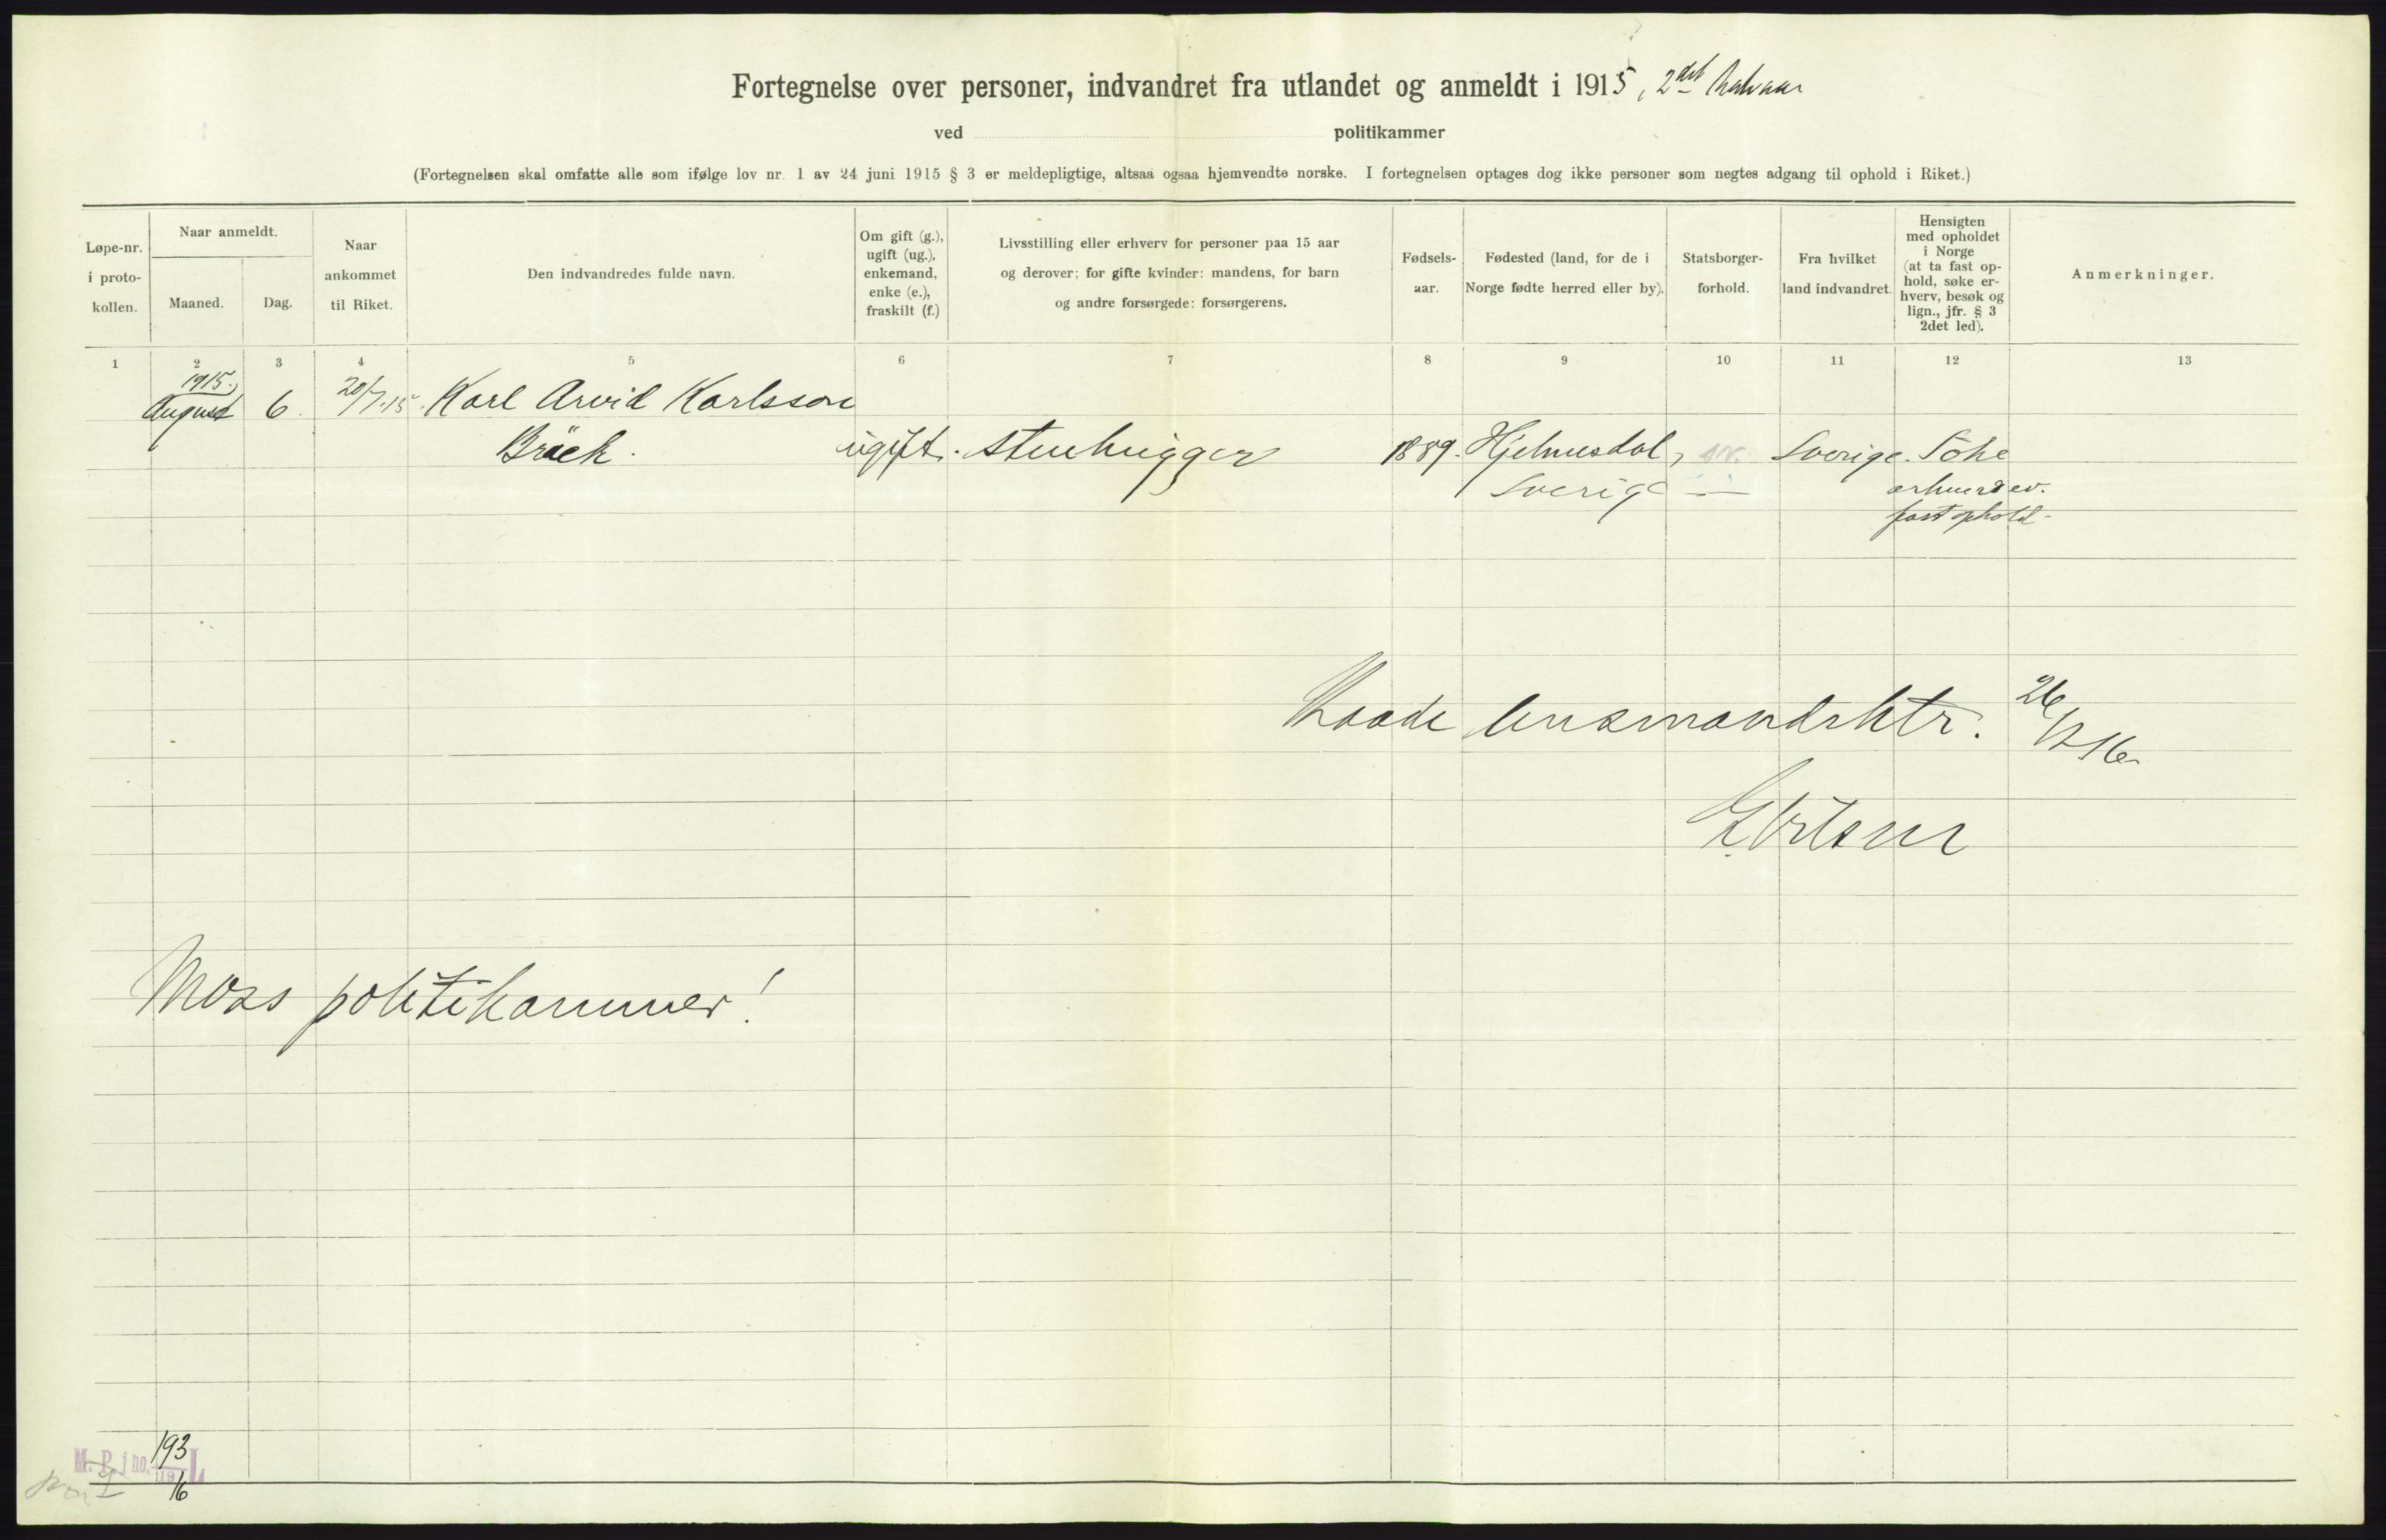 Fortegnelse over personer, indvandret fra utlandet og anmeldt i 1915, 2det halvaar
ved politikammer
(Fortegnelsen skal omfatte alle som ifølge lov nr. 1 av 24 juni 1915 § 3 er meldepligtige, altsaa ogsaa hjemvendte norske. I fortegnelsen optages dog ikke personer som negtes adgang til ophold i Riket.)
Løpe-nr.
i proto-
kollen.
Naar anmeldt.
Maaned.
Dag.
Naar
ankommet
til Riket.
Den indvandredes fulde navn.
Om gift (g.),
ugift (ug.),
enkemand,
enke (e.),
fraskilt (f.)
Livsstilling eller erhverv for personer paa 15 aar
og derover; for gifte kvinder: mandens, for barn
og andre forsørgede: forsørgerens.
Fødsels-
aar.
Fødested (land, for de i
Norge fødte herred eller by).
Statsborger-
forhold.
Fra hvilket
land indvandret.
Hensigten
med opholdet
i Norge
(at ta fast op-
hold, søke er-
hverv, besøk og
lign., jfr. § 3
2det led).
Anmerkninger.
1 2 3 4 5 6 7 8 9 10 11 12 13
1915.
August 6. 20/7.15. Karl Arvid Karlsson
Bräck. ugift. stenhugger 1889. Hjelmusdal, sv. Sverige. Söke
Sverige — erhverv ev.
fast ophold.
Raade lensmandsktr. 26/1 16
Moss politikammer!
M. P. j no. 193 L
19 16